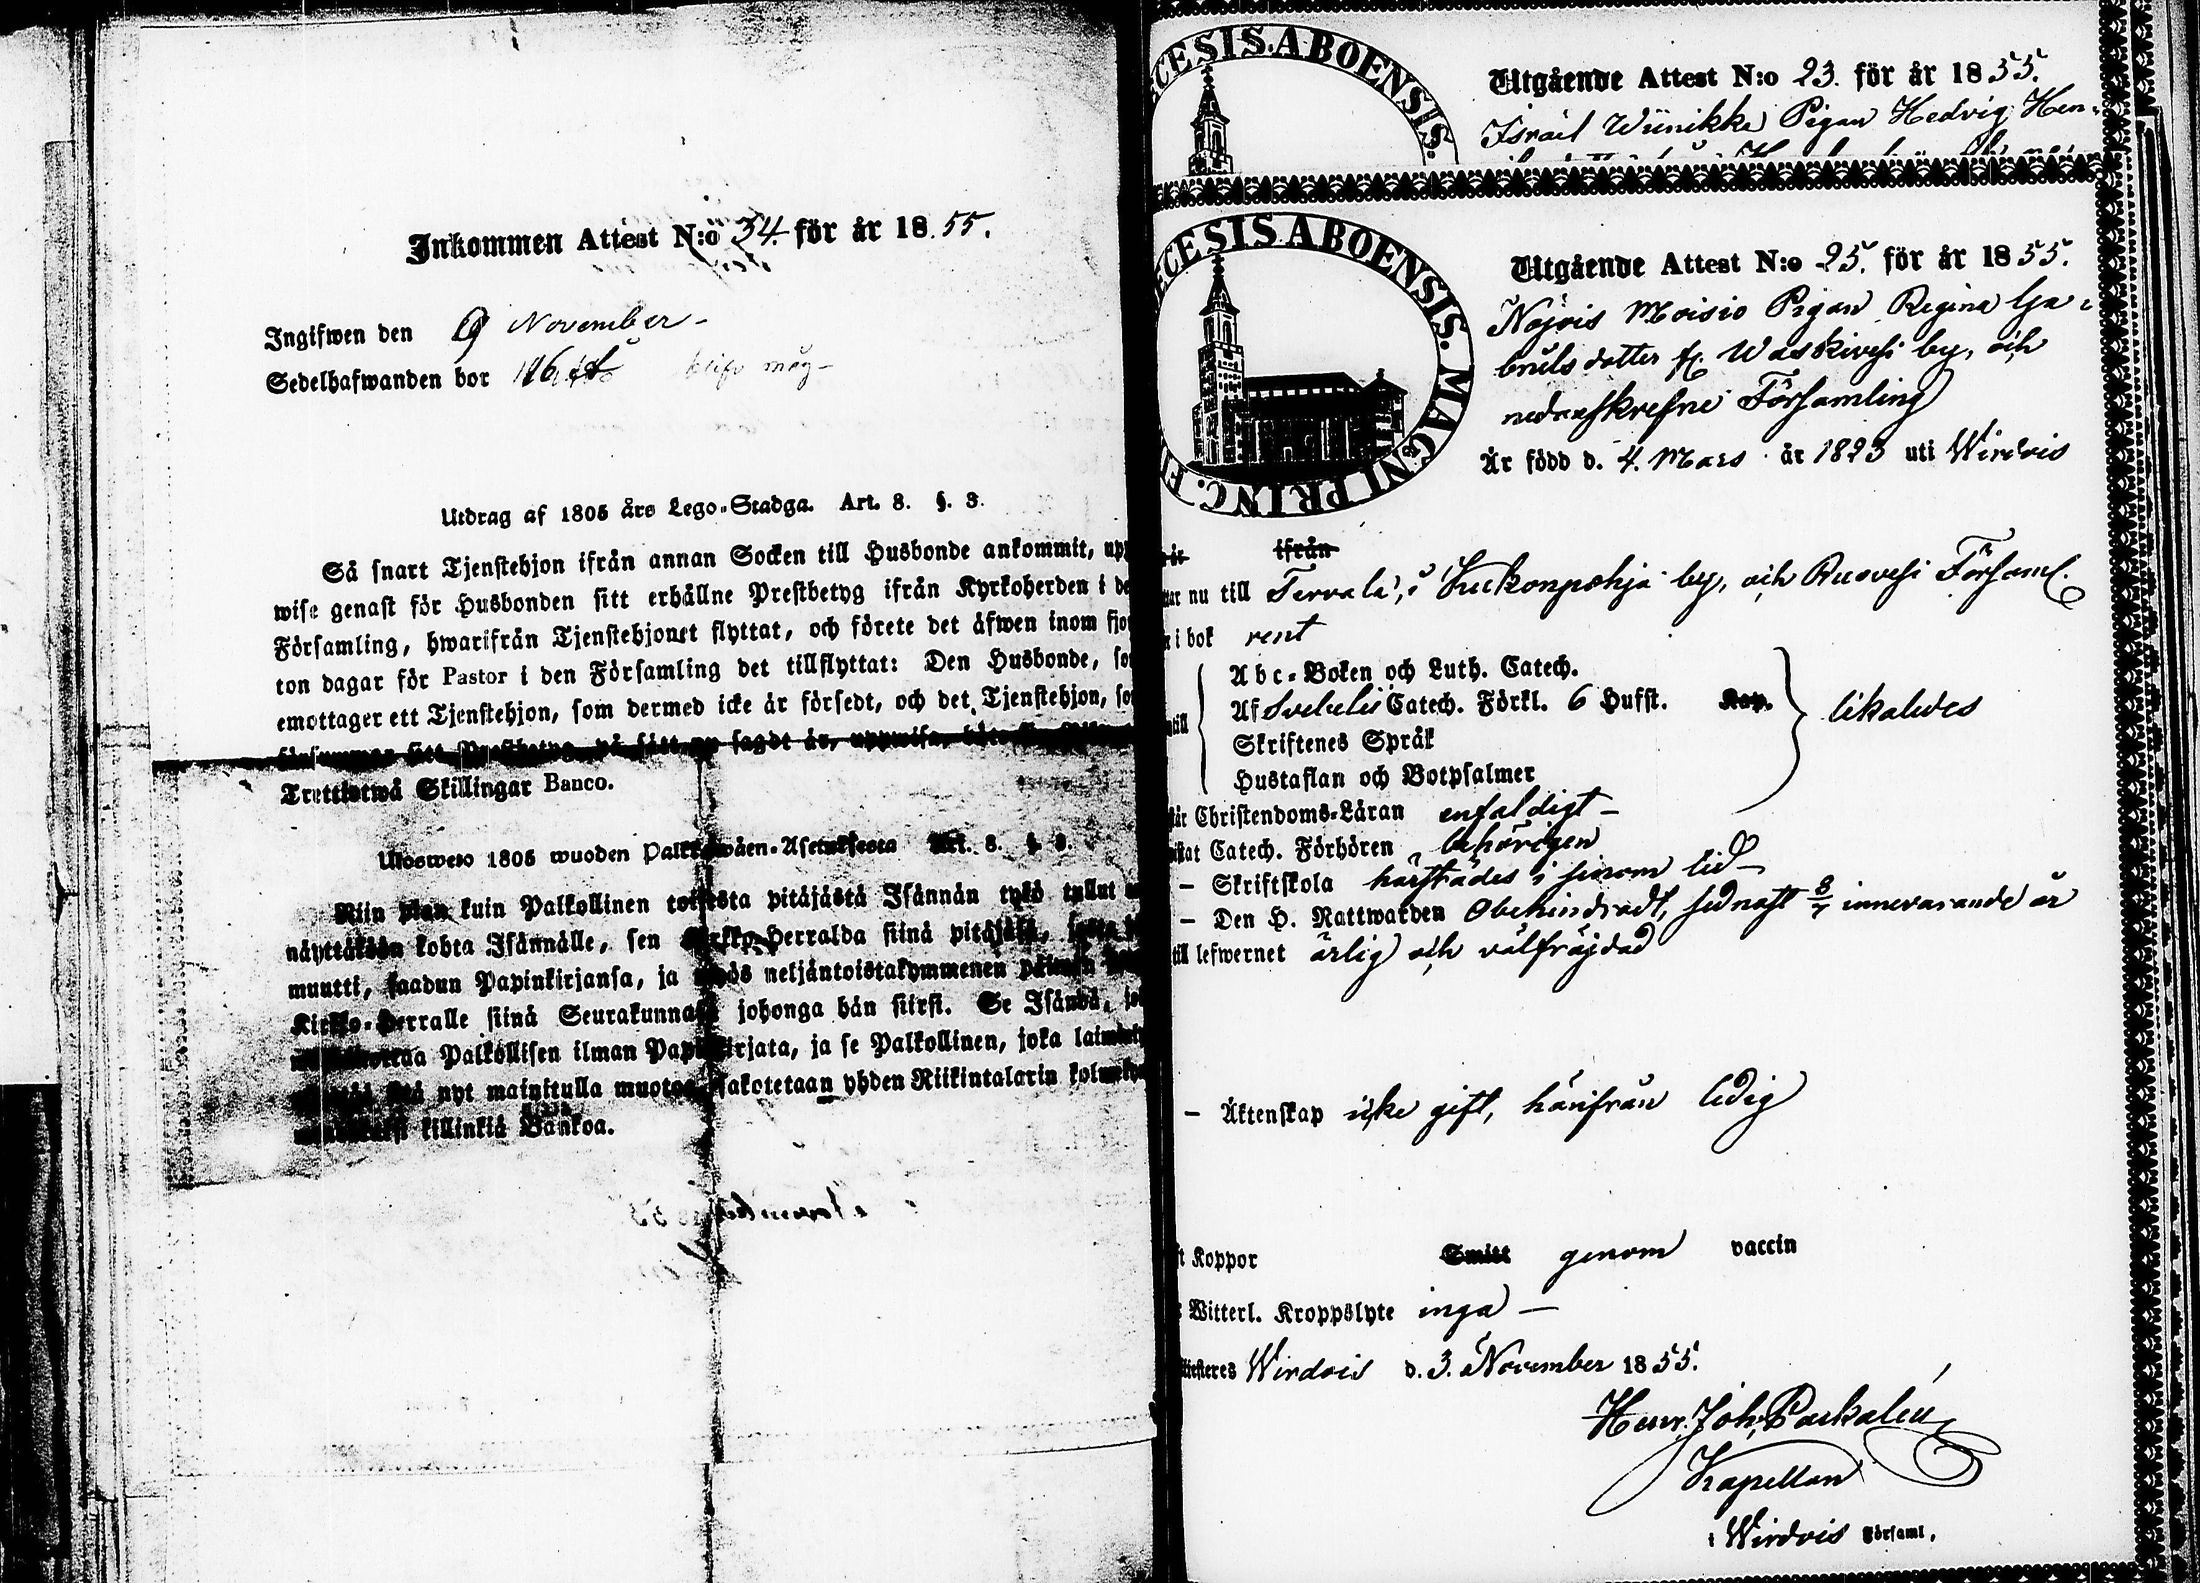 Inkommen Attest N:o 34. för år 1855.
Ingifwen den 9 November
Sedelhafwanden bor
Utdrag af 1805 års Lego-Stadga. Art. 8. §. 3.
Så snart Tjenstehjon ifrån annan Socken till Husbonde ankommit, upp
wise genast för Husbonden sitt erhållne Prestbetyg ifrån Kyrkoherden i de
Församling, hwarifrån Tjenstehjonet flyttat, och förete det äfwen inom fjor
ton dagar för Pastor i den Församling det tillflyttat: Den Husbonde, so
emottager ett Tjenstehjon, som dermed icke är försedt, och det Tjenstehjon, so
försummar sitt Prestbetyg på sätt nu sagdt är, uppwisa,
Trettiotwå Skillingar Banco.
Ulosweto 1805 wuoden Palkkawäen-Asetuksesta Art. 8. §. 3.
Niin pian kuin Palkollinen toisesta pitäjästä Isännän työ tullut
näyttäkään kohta Isännälle, sen Kirkko-Herralda siinä pitäjäsä,
muutti, saadun Papinkirjansa, ja myös neljäntoistakymmenen päiwän
Kirkko-Herralle siinä Seurakunnasa johonga hän siirsi. Se Isändä, jo
Palkollisen ilman Papinkirjata, ja se Palkollinen, joka laimin
sitä nyt mainitulla muotoa, sakotetaan yhden Riikintalarin kolme
killinkiä Bankoa.
CESIS ABOENSIS.
Utgående Attest N:o 23. för år 1855.
Israel Wiinikke Pigan Hedvig Hen-
CESIS ABOENSIS. MAGNI PRINC. FI
Utgående Attest N:o 25. för år 1855.
Nojois Moisio Pigan Regina Ga-
briels dotter fr. Waskivesi by, och
nedanskrefne Församling
År född d. 4. Mars år 1823 uti Wirdois
är ifrån
tar nu till Tervala, i Kukonpohja by, och Ruovesi Församl.
i bok rent
Abc-Boken och Luth. Catech.
Af Svebelii Catech. Förkl. 6 Hufst. Kap. likaledes
till Skriftenes Språk
Hustaflan och Botpsalmer
tår Christendoms-Läran enfaldigt –
istat Catech. Förhören behörigen
– Skriftskola härstädes i sinom tid –
– Den H. Nattwarden Obehindradt, sednast 8/7 innevarande år
till lefwernet ärlig och välfräjdad
– Äktenskap icke gift, härifrån ledig
ft Koppor Smitt genom vaccin
Witterl. Kroppslyte inga –
Wirdois d. 3. November 1855.
Henr. Joh. Paskalin
Kapellan
i Wirdois Församl.